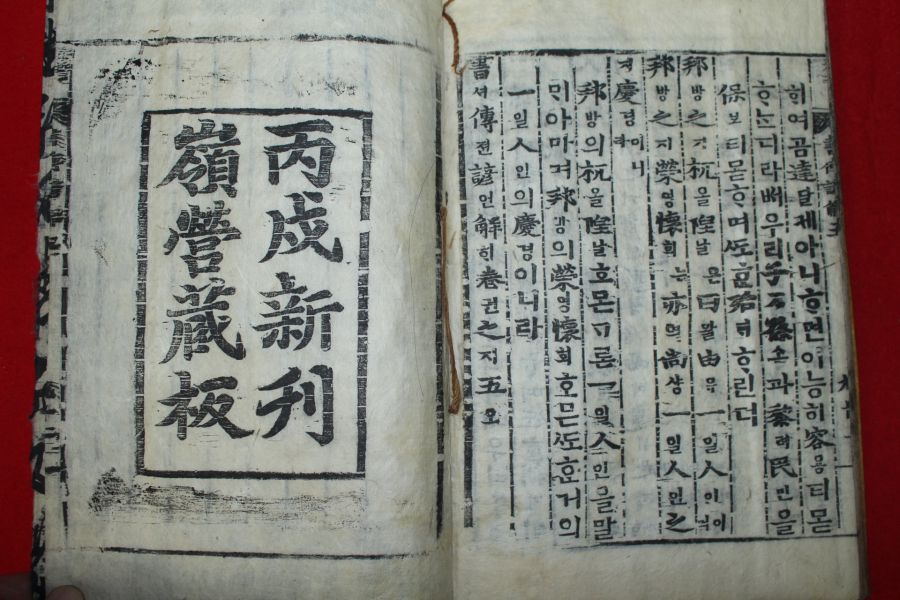 히여곰達달케아니ᄒᆞ면이능히容용티몯
ᄒᆞᄂᆞ디라내우리子ᄌᆞ孫손과黎려民민을
保보티몯ᄒᆞ며ᄯᅩᄒᆞᆫ殆ᄐᆡᄒᆞ린뎌
邦방之지杌올隉날은曰왈由유一일人인이
邦방之지榮영懷회ᄂᆞᆫ亦역尙샹一일人인之
지慶경이니라
邦방의杌올隉날호몬ᄀᆞ론一일人인을말
ᄆᆡ아마며邦방의榮영懷회호ᄆᆞᆫᄯᅩᄒᆞᆫ거의
一일人인의慶경이니라
書셔傳젼諺언解ᄒᆡ卷권之지五오
丙戌新刊
嶺營藏板